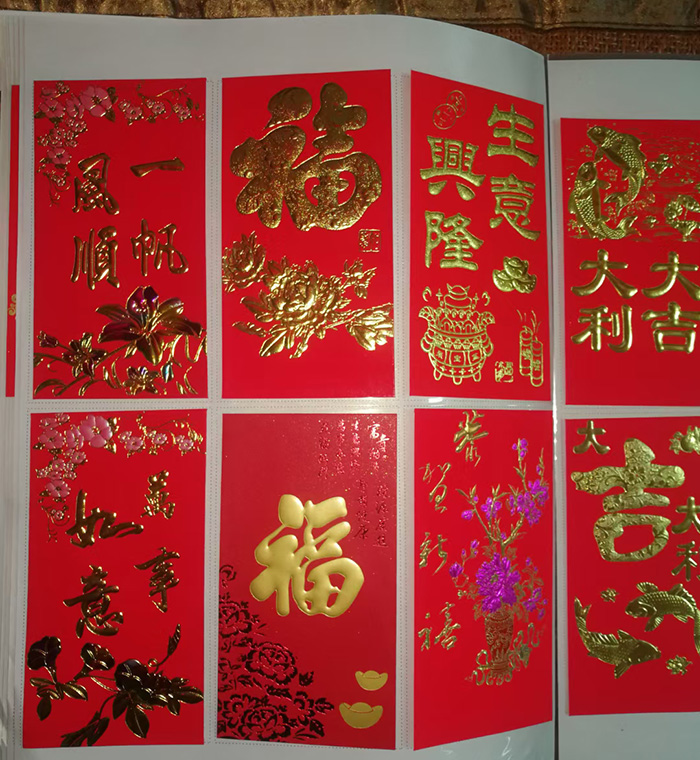 一帆
風順
福
生意
興隆
大吉
大利
萬事
如意
福
恭賀新禧
大
吉
大利